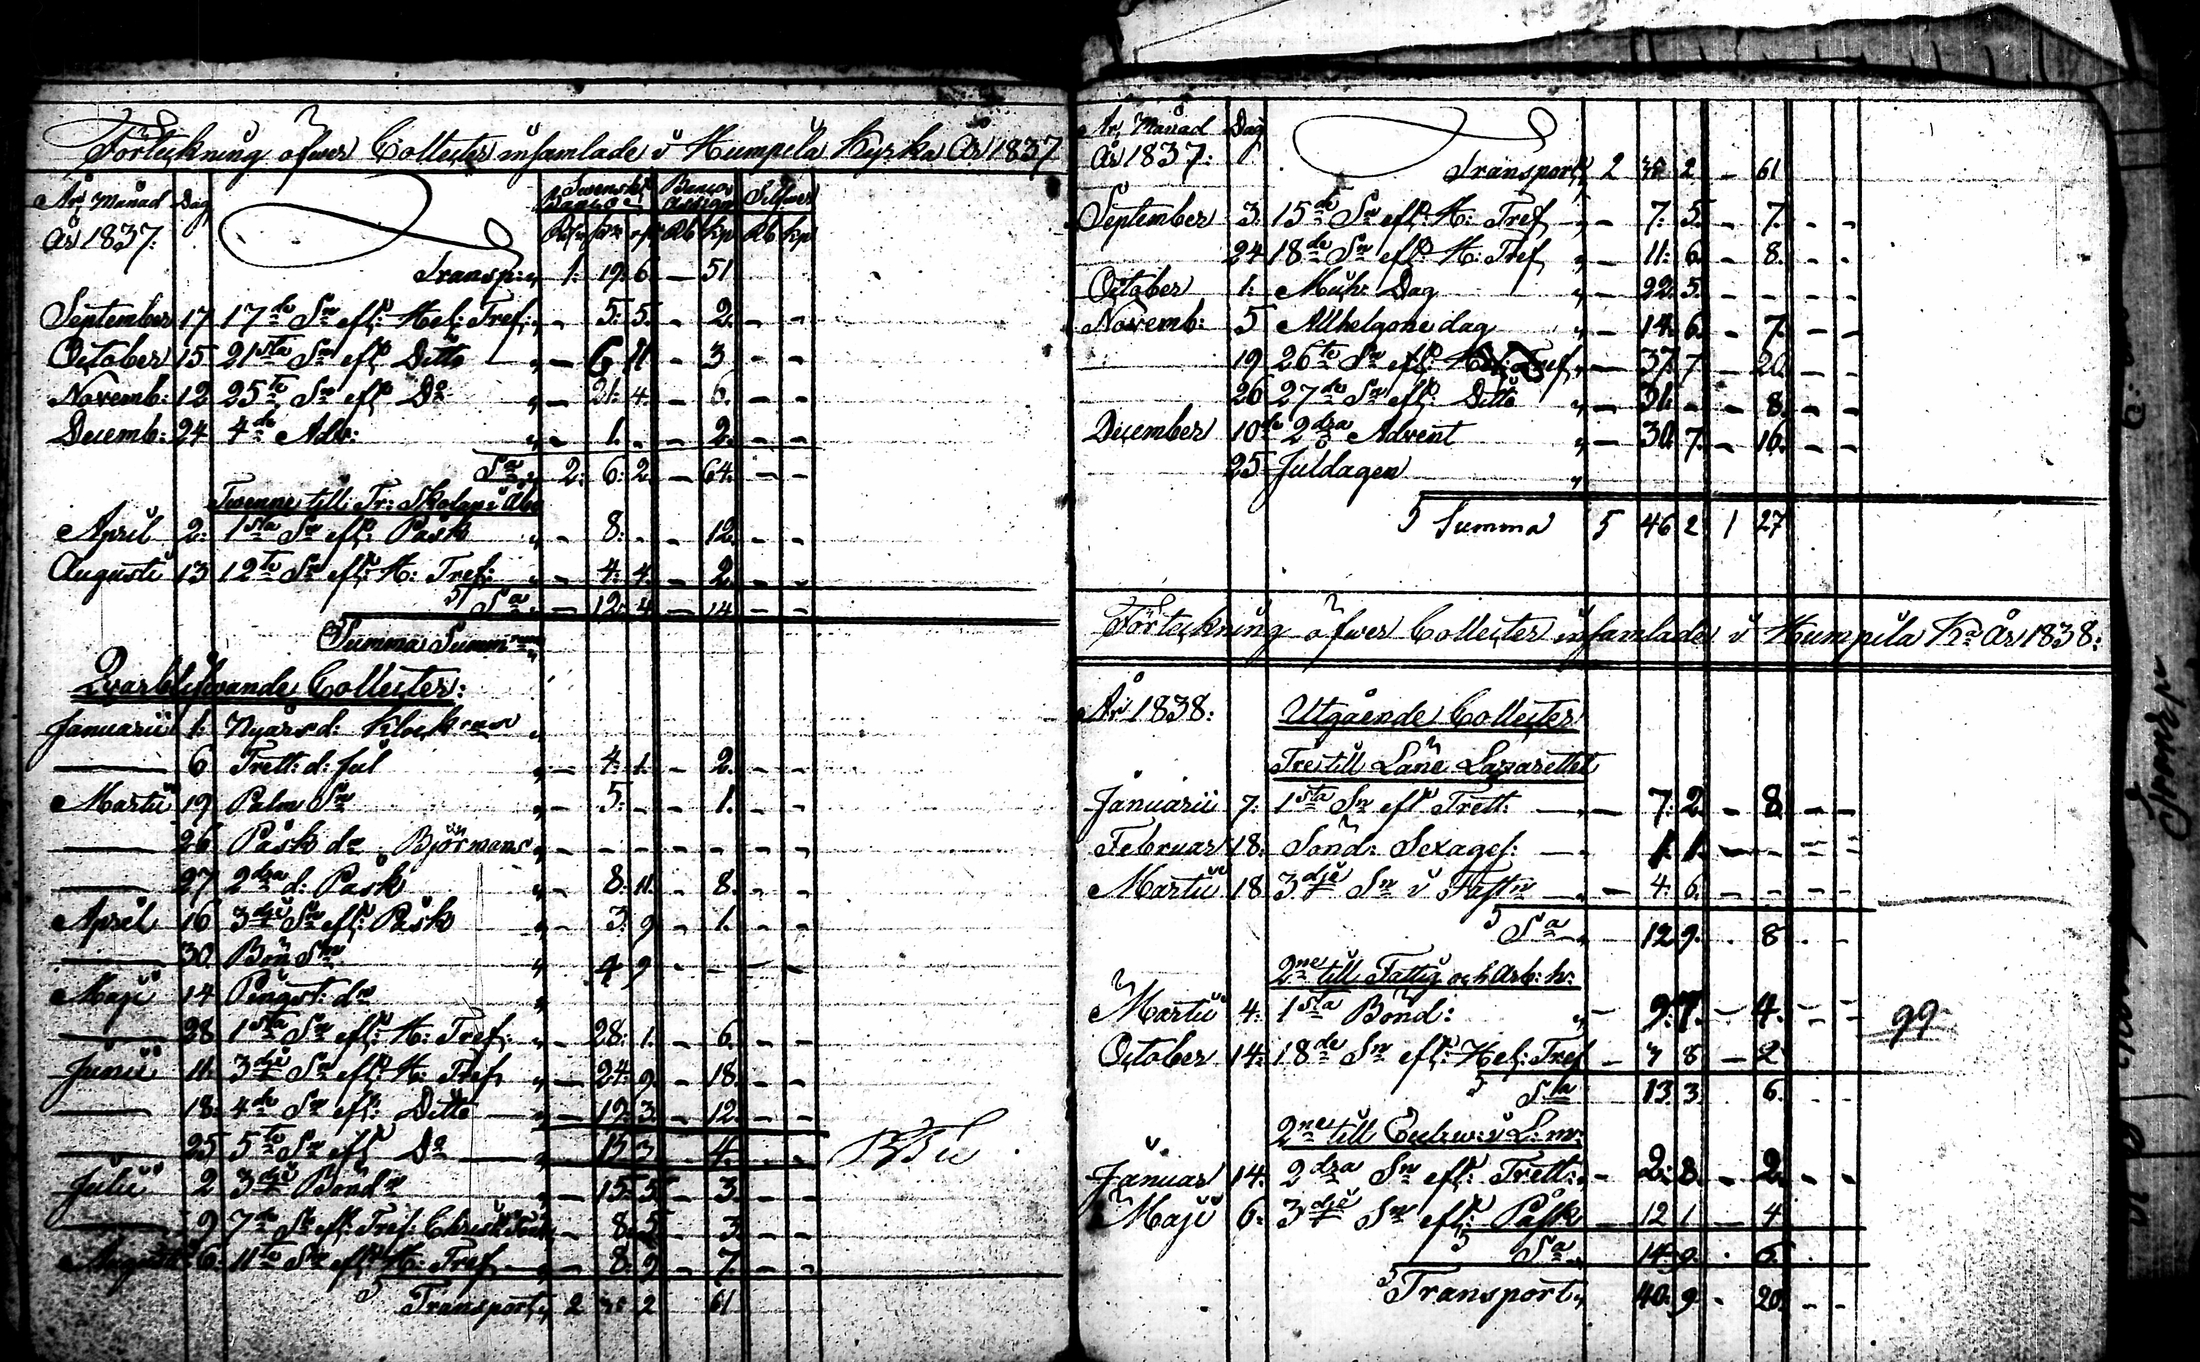 Förteckning öfwer Collecter insamlade i Humpila Kyrka År 1837
År, Månad Dag Swenskt Banco Banco Assign Silfwer
År 1837: Rdr sk r Rb kp Rb kp
Transp: 1: 19: 6. — 51
September 17 17de Sn eft: Hel: Tref: — 5: 5. — 2. — —
October 15 21sta Sn eft: Ditto — 6 11 — 3 — —
Novemb: 12 25te Sn eft: Do — 21: 4. — 6. — —
Decemb: 24 4de Adv: — 1. — — 2. — —
Sa 2: 6: 2. — 64. — —
Twenne till Tr: Skolan i Åbo
April 2: 1sta Sn eft: Påsk — 8: — — 12. — —
Augusti 13 12te Sn eft: H: Tref: — 4: 4. — 2. — —
Sa — 12: 4 — 14 — —
Summa Summarum
Qvarblifwande Collecter:
Januarii 1. Nyårsd: Klockaren
6 Trett: d: Jul — 4: 1. — 2. — —
Martii 19 Palm Sn — 5. — — 1. — —
26 Påsk dn Björmans — — — — — — —
27 2dra d: Påsk — 8: 11. — 8. — —
April 16 3dje Sn eft: Påsk — 3: 9 — 1. — —
30 Bön Sn 4 9 — — — —
Maji 14 Pingst: dn
28 1sta Sn eft: H: Tref: — 28: 1. — 6. — —
Junii 11. 3dje Sn eft: H: Tref — 24: 9. — 18. — —
18: 4de Sn eft: Ditto — 19: 3. — 12. — —
25 5te Sn eft Do — 13 3 — 4. — —
Julii 2 3dje Bönd — 15: 5 — 3. — —
9 7de Sn eft: Tref: — 8: 5 — 3. — —
Augusti 6: 11te Sn eft: H: Tref — 8: 9 — 7. — —
Transport 2 2 61
År, Månad Dag
År 1837: Transport 2 2 — 61
September 3: 15de Sn eft: H: Tref — 7: 5. — 7. — —
24 18de Sn eft: H: Tref — 11: 6. — 8. — —
October 1: Mich: Dag — 22: 5. — — — —
Novemb: 5 Allhelgone dag — 14: 6. — 7. — —
19 26te Sn eft: Hel: Tref — 37: 7 — 20. — —
26 27de Sn eft: Ditto — 31. — — 8. — —
December 10de 2dra Advent — 30. 7. — 16. — —
25 Juldagen
Summa 5 46 2 1 27
Förteckning öfwer Collecter insamlade i Humpila Ka År 1838:
År 1838: Utgående Collecter
Tre till Läne Lazarettet
Januarii 7: 1sta Sn eft Trett: — 7: 2. — 8. — —
Februar 18: Sönd: Sexages: — 1. 1. — — — —
Martii 18 3dje Sn i Fastn — 4: 6. — — — —
Sa 12 9. . 8 . —
2ne till Fattig och Arb: h:
Martii 4: 1sta Bönd: — 9: 7. — 4. — — 99
October 14: 18de Sn eft: Hel: Tref — 7 8 — 2
Sa 13. 3. 6. . —
2ne till
Januar 14: 2dra Sn eft: Trett: — 2: 8. — 2. — —
Maji 6: 3dje Sn eft: Påsk — 12 1 — 4
Sa 14: 9. . 6. .
Transport 40: 9. — 20. — —